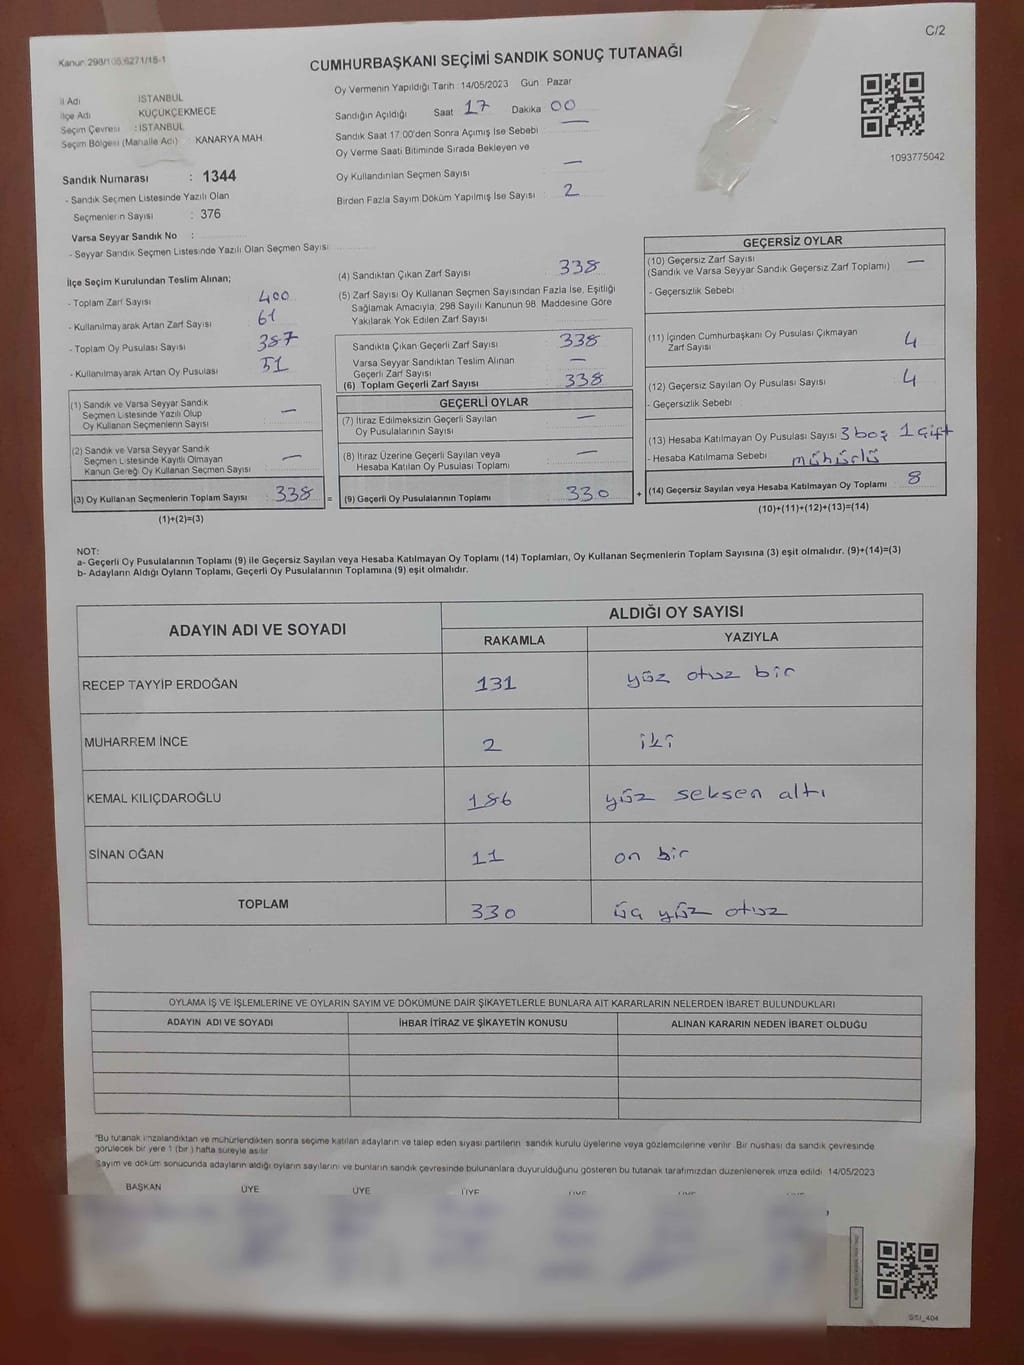 C/2
Kanun 298/108;6271/18-1
CUMHURBAŞKANI SEÇİMİ SANDIK SONUÇ TUTANAĞI
İl Adı İSTANBUL
İlçe Adı KÜÇÜKÇEKMECE
Seçim Çevresi : İSTANBUL
Seçim Bölgesi (Mahalle Adı) KANARYA MAH.
Sandık Numarası : 1344
- Sandık Seçmen Listesinde Yazılı Olan
Seçmenlerin Sayısı : 376
Varsa Seyyar Sandık No :
- Seyyar Sandık Seçmen Listesinde Yazılı Olan Seçmen Sayısı
Oy Vermenin Yapıldığı Tarih : 14/05/2023 Gün Pazar
Sandığın Açıldığı Saat 17 Dakika 00
Sandık Saat 17:00'den Sonra Açımış İse Sebebi —
Oy Verme Saati Bitiminde Sırada Bekleyen ve
Oy Kullandırılan Seçmen Sayısı —
Birden Fazla Sayım Döküm Yapılmış İse Sayısı : 2
1093775042
İlçe Seçim Kurulundan Teslim Alınan;
- Toplam Zarf Sayısı 400
- Kullanılmayarak Artan Zarf Sayısı 61
- Toplam Oy Pusulası Sayısı 387
- Kullanılmayarak Artan Oy Pusulası 51
(1) Sandık ve Varsa Seyyar Sandık
Seçmen Listesinde Yazılı Olup
Oy Kullanan Seçmenlerin Sayısı —
(2) Sandık ve Varsa Seyyar Sandık
Seçmen Listesinde Kayıtlı Olmayan
Kanun Gereği Oy Kullanan Seçmen Sayısı —
(3) Oy Kullanan Seçmenlerin Toplam Sayısı : 338
(1)+(2)=(3)
(4) Sandıktan Çıkan Zarf Sayısı 338
(5) Zarf Sayısı Oy Kullanan Seçmen Sayısından Fazla İse, Eşitliği
Sağlamak Amacıyla, 298 Sayılı Kanunun 98. Maddesine Göre
Yakılarak Yok Edilen Zarf Sayısı
Sandıkta Çıkan Geçerli Zarf Sayısı 338
Varsa Seyyar Sandıktan Teslim Alınan
Geçerli Zarf Sayısı —
(6) Toplam Geçerli Zarf Sayısı 338
GEÇERLİ OYLAR
(7) İtiraz Edilmeksizin Geçerli Sayılan
Oy Pusulalarının Sayısı —
(8) İtiraz Üzerine Geçerli Sayılan veya
Hesaba Katılan Oy Pusulası Toplamı —
= (9) Geçerli Oy Pusulalarının Toplamı : 330 +
GEÇERSİZ OYLAR
(10) Geçersiz Zarf Sayısı —
(Sandık ve Varsa Seyyar Sandık Geçersiz Zarf Toplamı)
- Geçersizlik Sebebi
(11) İçinden Cumhurbaşkanı Oy Pusulası Çıkmayan
Zarf Sayısı 4
(12) Geçersiz Sayılan Oy Pusulası Sayısı 4
- Geçersizlik Sebebi
(13) Hesaba Katılmayan Oy Pusulası Sayısı 3 boş 1 çift
- Hesaba Katılmama Sebebi mühürlü
(14) Geçersiz Sayılan veya Hesaba Katılmayan Oy Toplamı 8
(10)+(11)+(12)+(13)=(14)
NOT:
a- Geçerli Oy Pusulalarının Toplamı (9) ile Geçersiz Sayılan veya Hesaba Katılmayan Oy Toplamı (14) Toplamları, Oy Kullanan Seçmenlerin Toplam Sayısına (3) eşit olmalıdır. (9)+(14)=(3)
b- Adayların Aldığı Oyların Toplamı, Geçerli Oy Pusulalarının Toplamına (9) eşit olmalıdır.
ADAYIN ADI VE SOYADI ALDIĞI OY SAYISI
RAKAMLA YAZIYLA
RECEP TAYYİP ERDOĞAN 131 yüz otuz bir
MUHARREM İNCE 2 iki
KEMAL KILIÇDAROĞLU 186 yüz seksen altı
SİNAN OĞAN 11 on bir
TOPLAM 330 üç yüz otuz
OYLAMA İŞ VE İŞLEMLERİNE VE OYLARIN SAYIM VE DÖKÜMÜNE DAİR ŞİKAYETLERLE BUNLARA AİT KARARLARIN NELERDEN İBARET BULUNDUKLARI
ADAYIN ADI VE SOYADI İHBAR İTİRAZ VE ŞİKAYETİN KONUSU ALINAN KARARIN NEDEN İBARET OLDUĞU
*Bu tutanak imzalandıktan ve mühürlendikten sonra seçime katılan adayların ve talep eden siyasi partilerin sandık kurulu üyelerine veya gözlemcilerine verilir. Bir nüshası da sandık çevresinde
görülecek bir yere 1 (bir) hafta süreyle asılır.
Sayım ve döküm sonucunda adayların aldığı oyların sayılarını ve bunların sandık çevresinde bulunanlara duyurulduğunu gösteren bu tutanak tarafımızdan düzenlenerek imza edildi. 14/05/2023
BAŞKAN ÜYE ÜYE ÜYE ÜYE ÜYE ÜYE